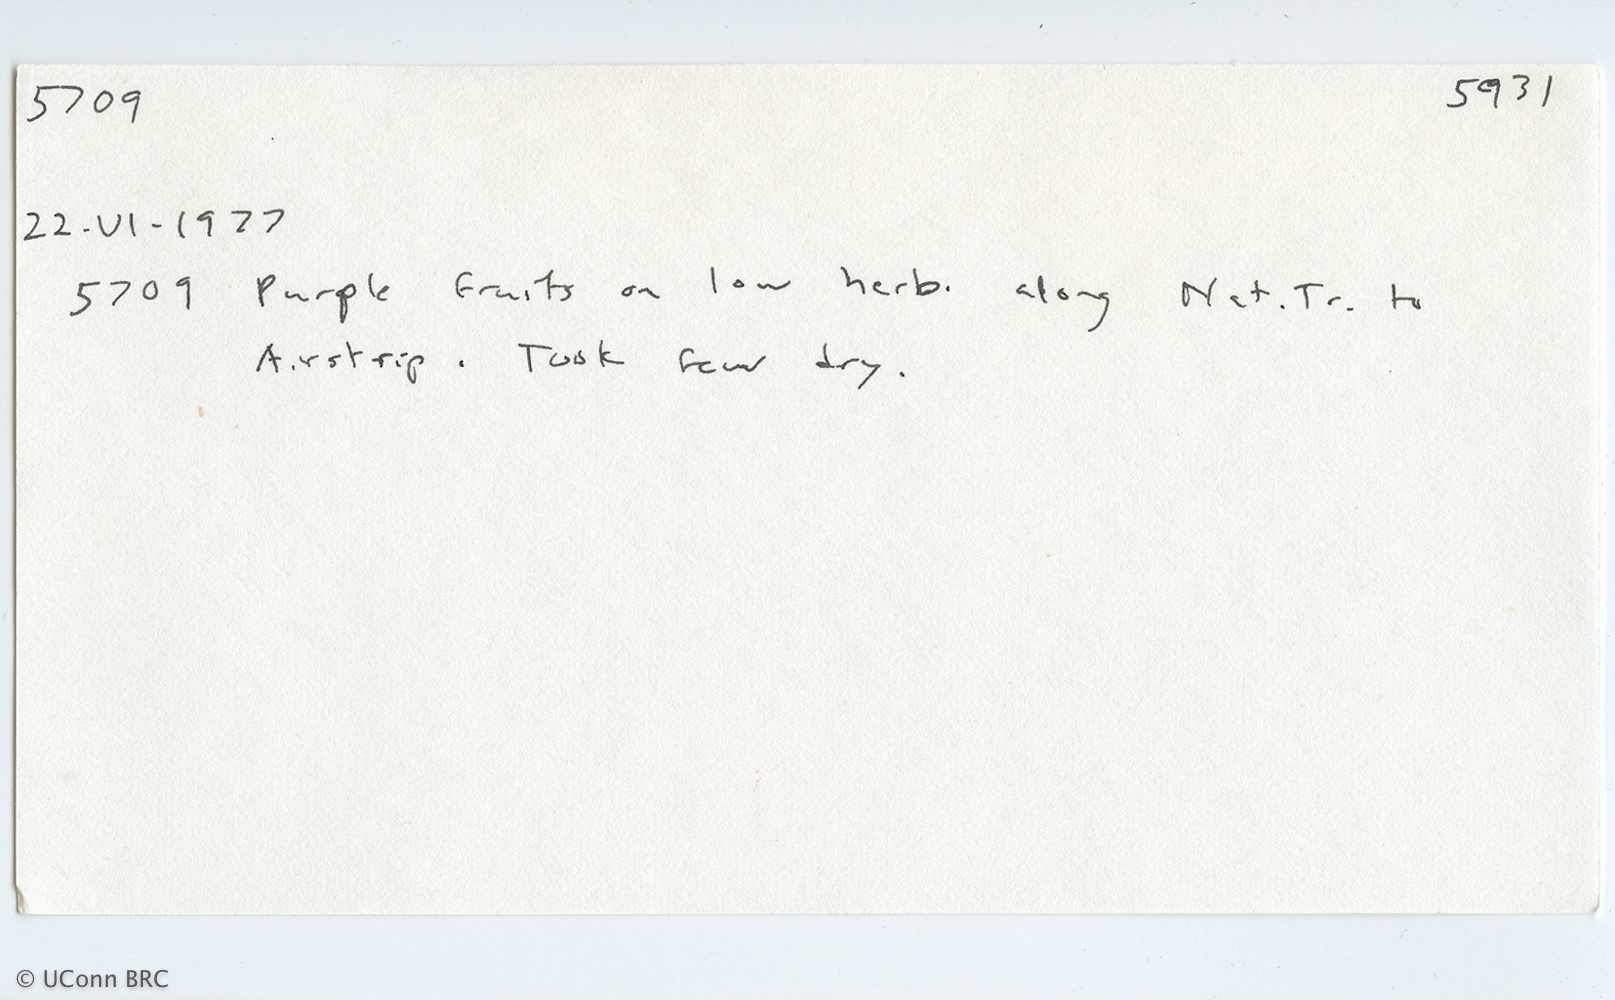 5709 5931
22-VI-1977
5709 Purple fruits on low herb. along Nat. Tr. to
Airstrip. Took few dry.
© UConn BRC